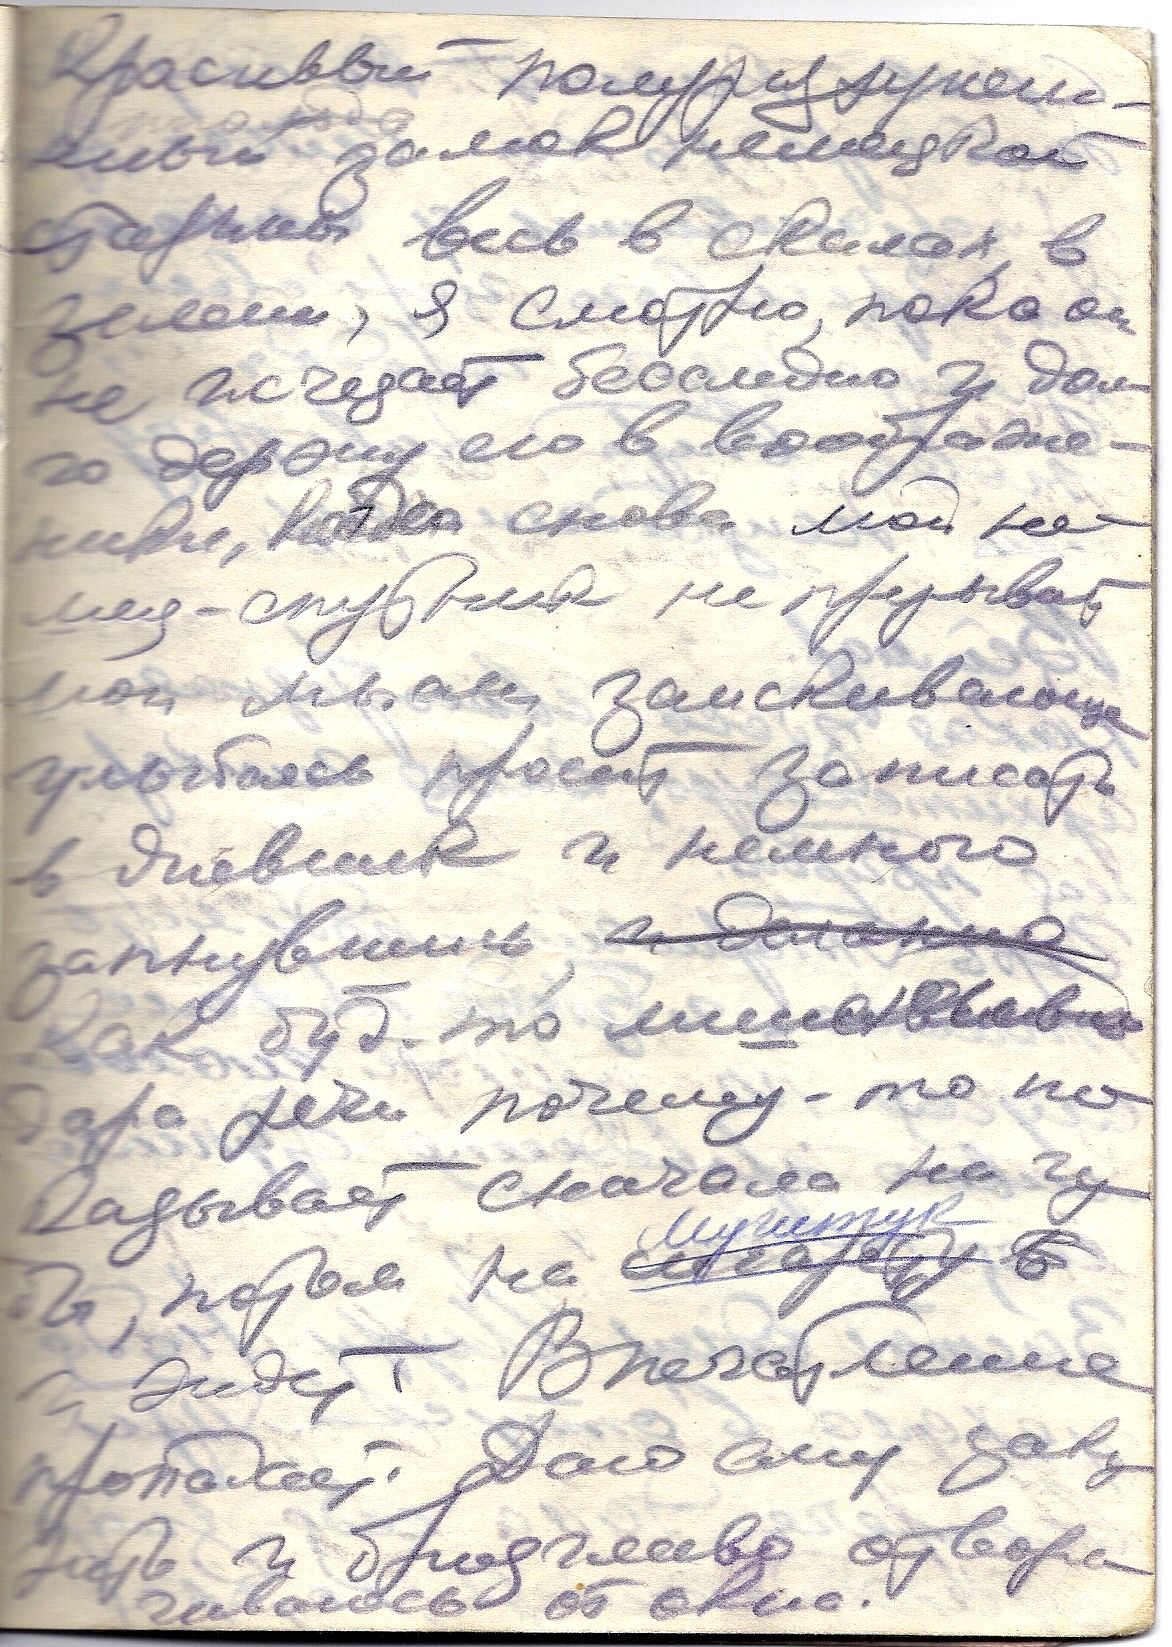 Красивый полуразрушен-
ный замок немецкой
старины весь в скалах, в
зелени, я смотрю, пока он
не исчезает бесследно и дол-
го держу его в воображе-
нии, снова мой не-
мец-спутник не прерывает
мои мысли, заискивающе
улыбаясь просит записать
в дневник и немного
запнувшись,
как буд-то лишившись
дара речи почему-то по-
казывает сначала на гу-
бы, потом на мундштук
и ждёт. Впечатление
пропадает. Даю ему заку-
рить и брезгливо отвора-
чиваюсь от окна.